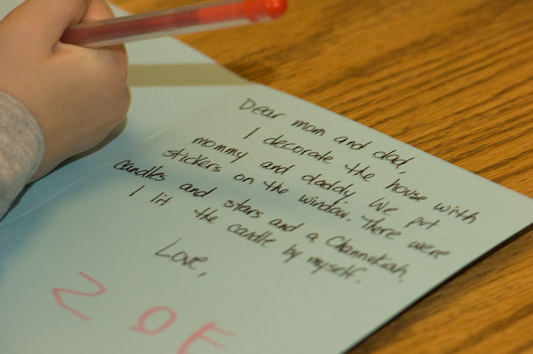 Dear mom and dad,
I decorate the house with
mommy and daddy. We put
stickers on the window. There were
candles and stars and a Channukiah.
I lit the candle by myself.
Love,
ZOE